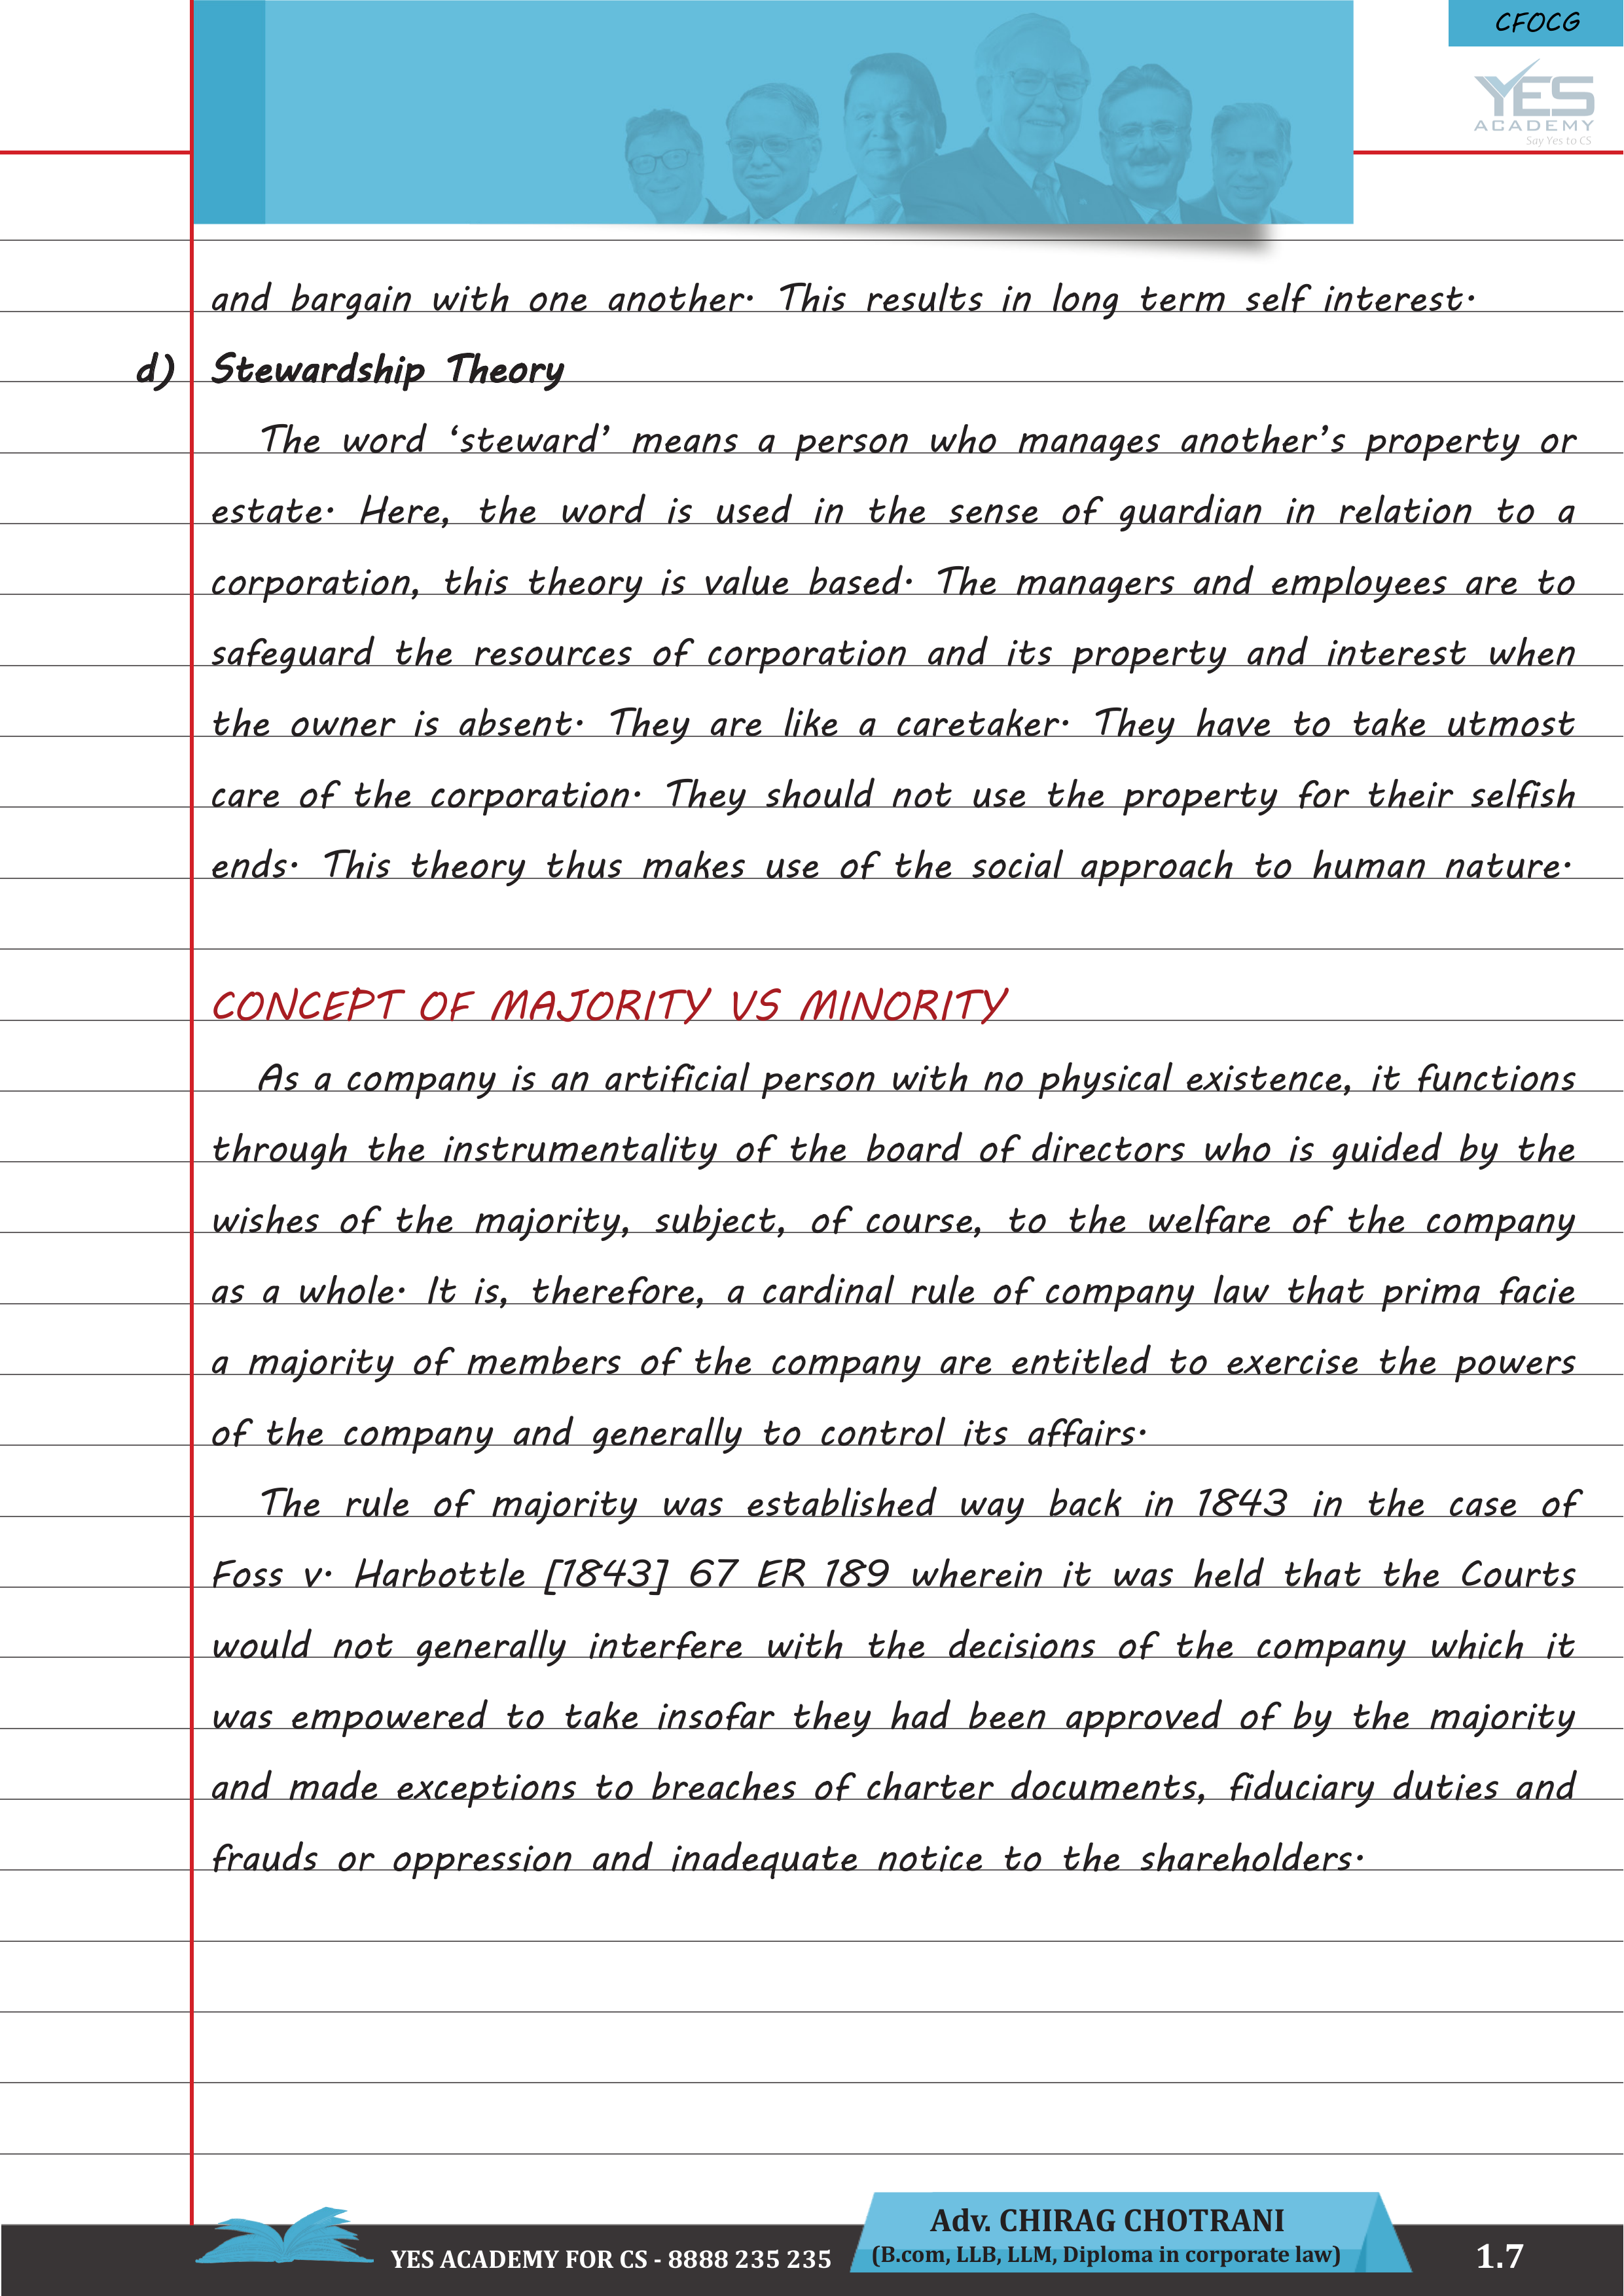 CFOCG
YES
ACADEMY
Say Yes to CS
and bargain with one another. This results in long term self interest.
d) Stewardship Theory
The word ‘steward’ means a person who manages another’s property or
estate. Here, the word is used in the sense of guardian in relation to a
corporation, this theory is value based. The managers and employees are to
safeguard the resources of corporation and its property and interest when
the owner is absent. They are like a caretaker. They have to take utmost
care of the corporation. They should not use the property for their selfish
ends. This theory thus makes use of the social approach to human nature.
CONCEPT OF MAJORITY VS MINORITY
As a company is an artificial person with no physical existence, it functions
through the instrumentality of the board of directors who is guided by the
wishes of the majority, subject, of course, to the welfare of the company
as a whole. It is, therefore, a cardinal rule of company law that prima facie
a majority of members of the company are entitled to exercise the powers
of the company and generally to control its affairs.
The rule of majority was established way back in 1843 in the case of
Foss v. Harbottle [1843] 67 ER 189 wherein it was held that the Courts
would not generally interfere with the decisions of the company which it
was empowered to take insofar they had been approved of by the majority
and made exceptions to breaches of charter documents, fiduciary duties and
frauds or oppression and inadequate notice to the shareholders.
YES ACADEMY FOR CS - 8888 235 235
Adv. CHIRAG CHOTRANI
(B.com, LLB, LLM, Diploma in corporate law)
1.7